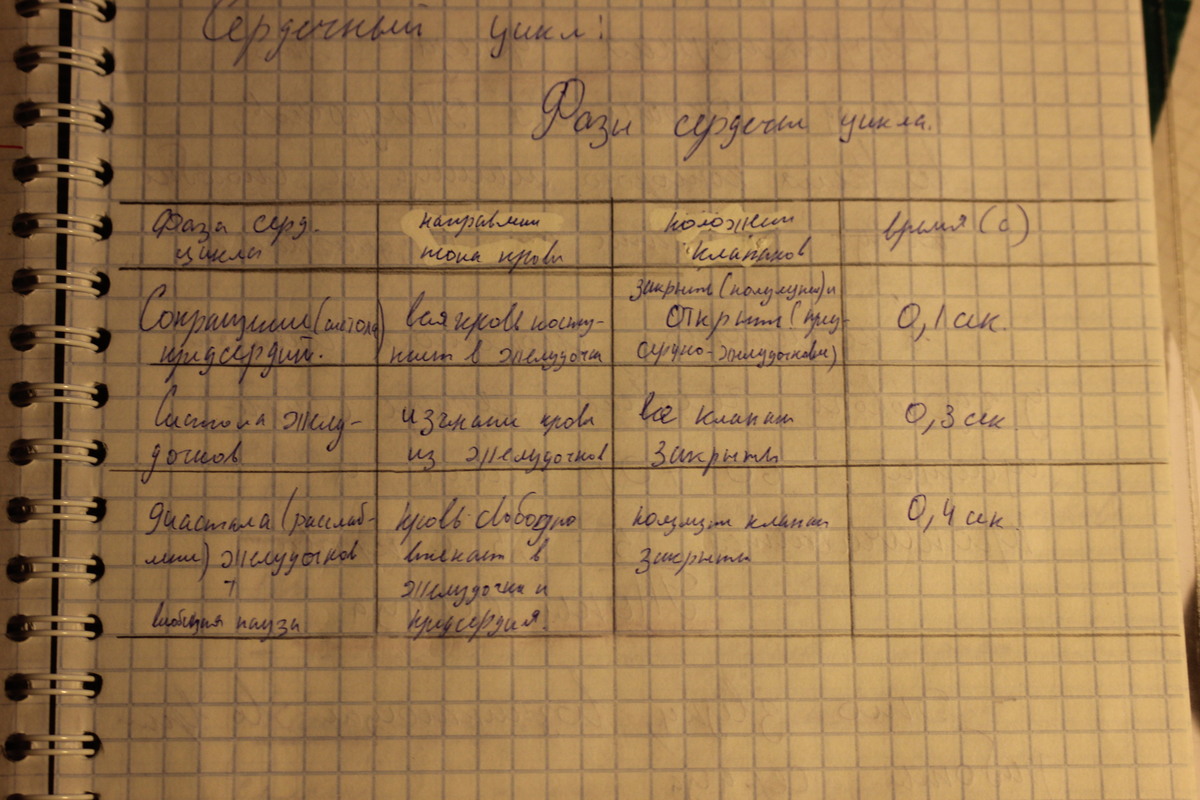 Сердечный цикл:
Фазы сердечн цикла.
Фаза серд.
цикла
направлени
тока крови
положен
клапанов
время (с)
Сокращение (систола)
предсердий.
вся кровь посту-
пает в желудочки
закрыты (полулунные) и
открыты (пред-
сердно-желудочковые)
0,1 сек.
Систола желу-
дочков
изгнание крови
из желудочков
все клапаны
закрыты
0,3 сек.
Диастола (расслаб-
ление) желудочков
+
пауза
кровь свободно
втекает в
желудочки и
предсердия.
клапаны
закрыты
0,4 сек.